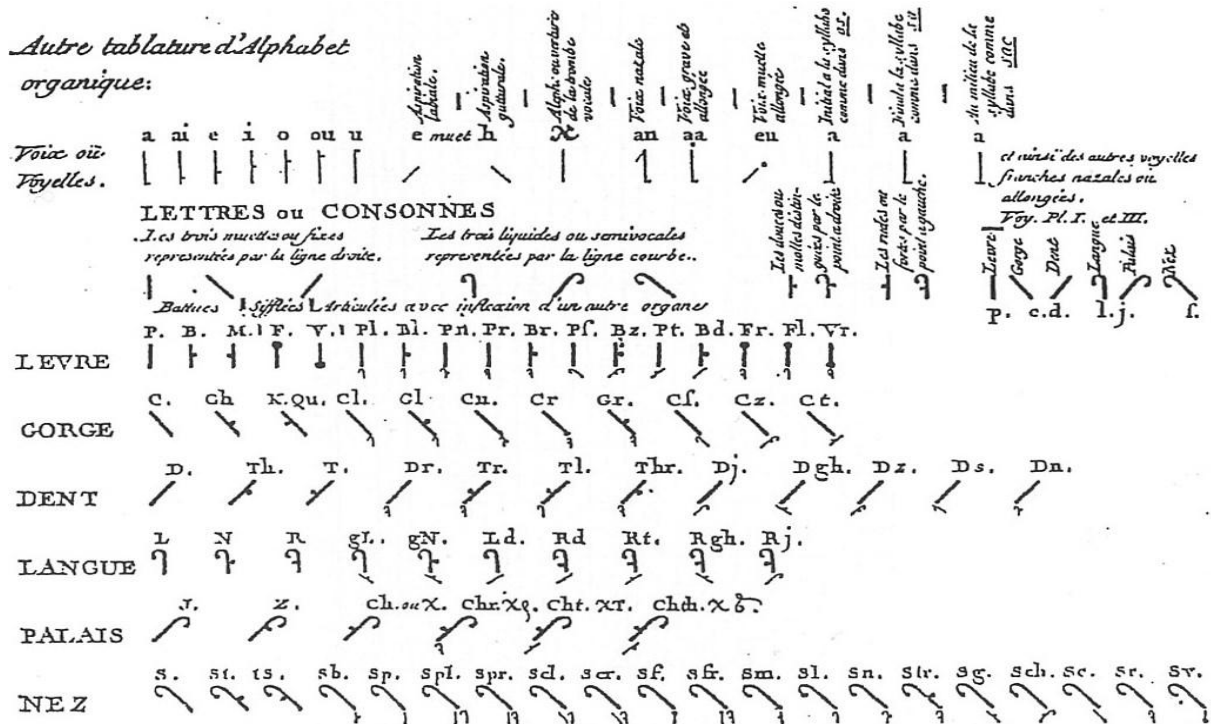 Autre tablature d'Alphabet
organique:
Aspiration
labiale.
Aspiration
gutturale.
Alphi ou ouverture
de la trombe
vocale
Voix nazale
Voix grave et
allongée
Voix muette
allongée
Initial a la syllabe
comme dans os.
Final a la syllabe
comme dans su
Au milieu de la
syllabe comme
dans sac
a ai e i o ou u e muet h an aa eu a a a
Voix où
Voyelles.
et ainsi des autres voyelles
franches nazales ou
allongées.
Voy. Pl. I. et III.
LETTRES ou CONSONNES
Les trois muettes ou fixes
representées par la ligne droite.
Les trois liquides ou semivocales
representées par la ligne courbe..
Les douces ou
molles distin-
guées par le
point a droite
Les rudes ou
fortes par le
point a gauche.
Levre Gorge Dent Langue Palais Nez
p. c. d. l. j. s.
Battues Sifflées Articulées avec inflexion d'un autre organe
P. B. M. F. V. Pl. Bl. Pn. Pr. Br. Pſ. Bz. Pt. Bd. Fr. Fl. Vr.
LEVRE
C. Gh K.Qu. Cl. Gl Cn. Cr Gr. Cſ. Cz. Ct.
GORGE
D. Th. T. Dr. Tr. Tl. Thr. Dj. Dgh. Dz. Ds. Dn.
DENT
L N R gL. gN. Ld. Rd Rt. Rgh. Rj.
LANGUE
J. Z. Ch. ou X. Chr. Cht. XT. Chth.
PALAIS
S. St. tS. Sb. Sp. Spl. Spr. Scl. Scr. Sf. Sfr. Sm. Sl. Sn. Str. Sg. Sch. Sc. Sr. Sv.
NEZ